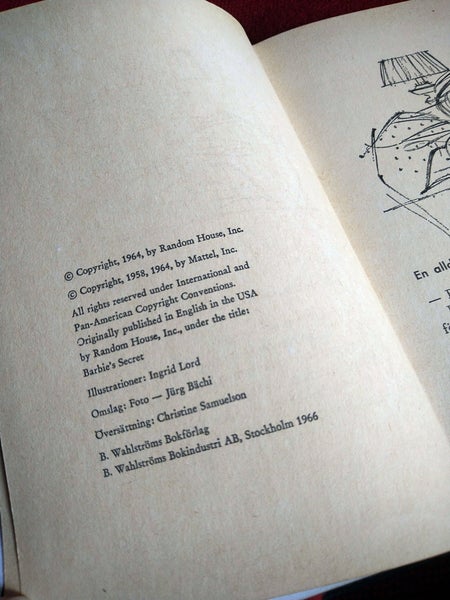 © Copyright, 1964, by Random House, Inc.
© Copyright, 1958, 1964, by Mattel, Inc.
All rights reserved under International and
Pan-American Copyright Conventions.
Originally published in English in the USA
by Random House, Inc., under the title:
Barbie's Secret
Illustrationer: Ingrid Lord
Omslag: Foto — Jürg Bächi
Översättning: Christine Samuelson
B. Wahlströms Bokförlag
B. Wahlströms Bokindustri AB, Stockholm 1966
En
—